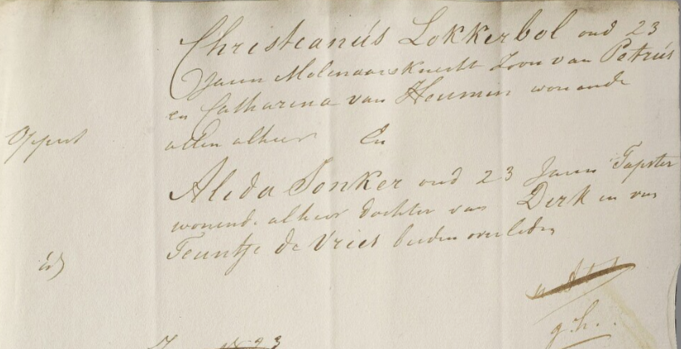 Christianús Lokkerbol oud 23
Jaren Molenaarsknecht Zoon van Petrús
en Catharina van Houmen wonende
allen alhier En
Oppert
Alida Jonker oud 23 Jaren Tapster
wonende alhier dochter van Derk en van
Teuntje de Vries beiden overleden
id
g.h.
23